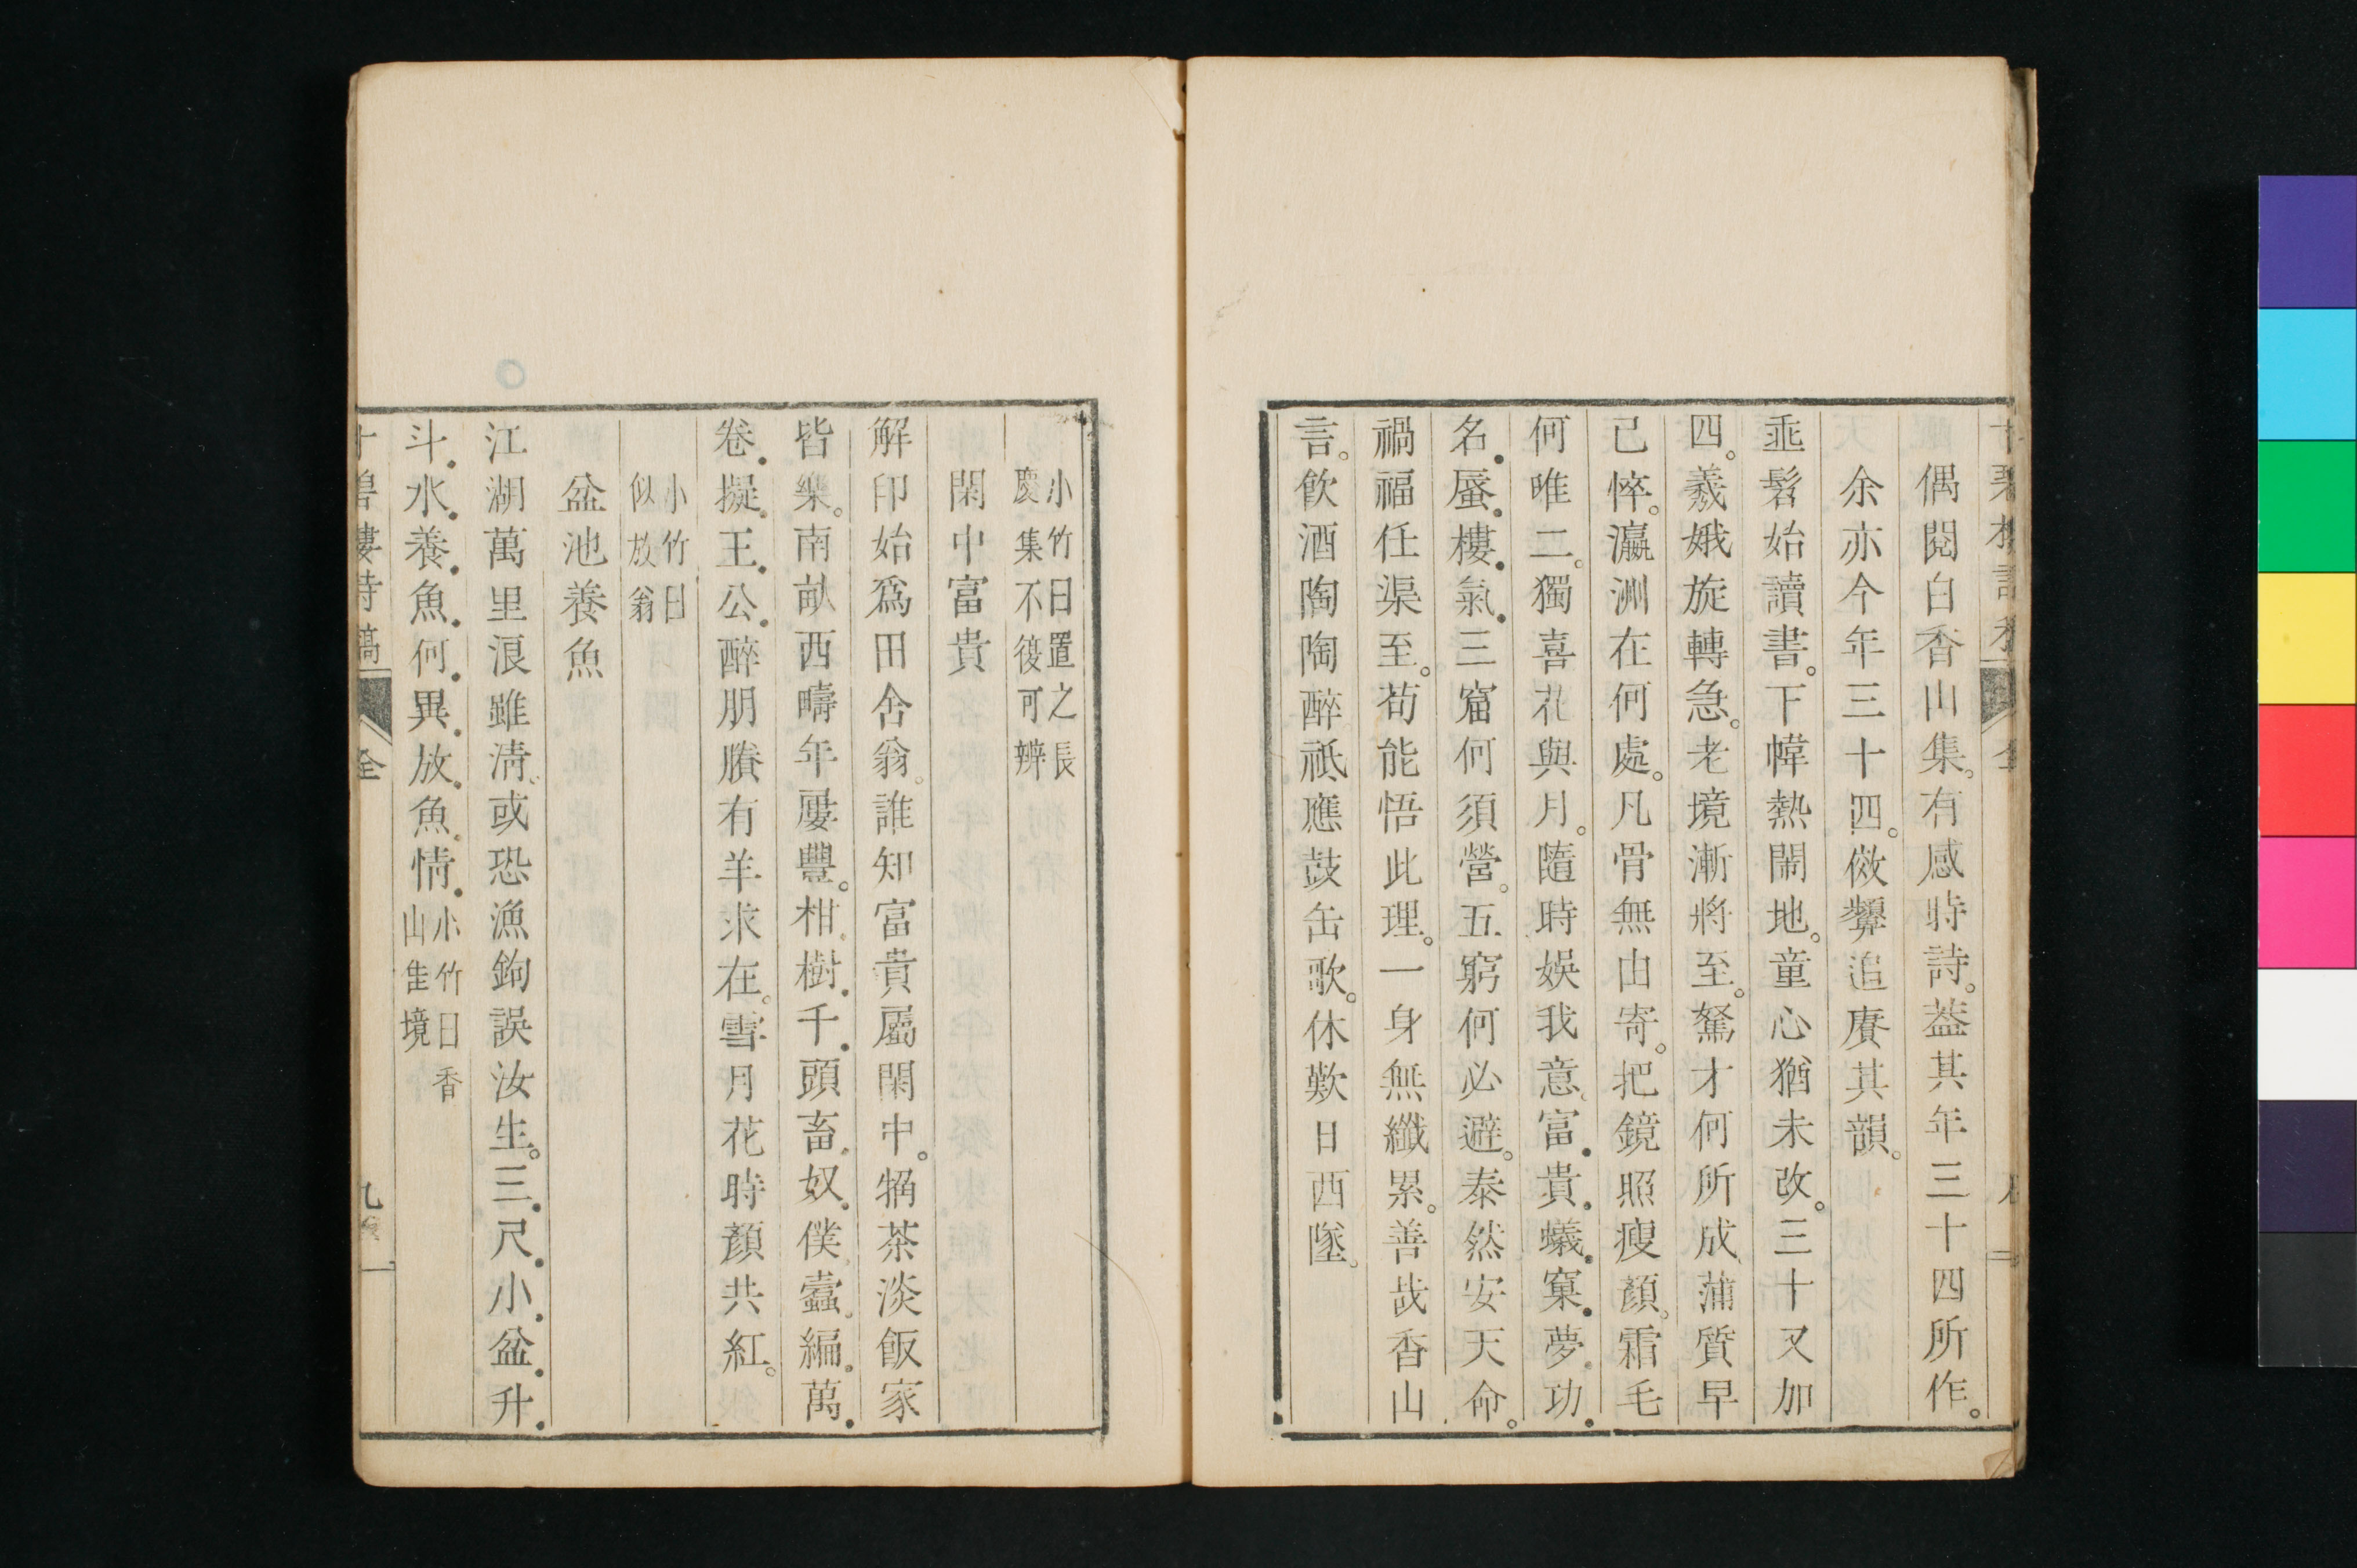 偶閱白香山集。有感時詩。葢其年三十四所作。
余亦今年三十四。傚顰追賡其韻。
垂髫始讀書。下幃熱鬧地。童心猶未改。三十又加
四。羲娥旋轉急。老境漸將至。駑才何所成蒲質早
已悴。瀛洲在何處。凡骨無由寄。把鏡照瘦顏。霜毛
何唯二。獨喜花與月。隨時娛我意。富貴蟻窠夢。功
名蜃樓氣。三窟何須營。五窮何必避。泰然安天命。
禍福任渠至。苟能悟此理。一身無纖累。善哉香山
言。飮酒陶陶醉祇應鼓缶歌。休歎日西墜。
小竹曰置之長
慶集不復可辨
閑中富貴
解印始爲田舍翁。誰知富貴屬閑中。犓茶淡飯家
皆樂。南畝西疇年屢豐。柑樹千頭畜奴僕蠹編萬
卷擬王公醉朋賸有羊求在。雪月花時顏共紅。
小竹曰
似放翁
盆池養魚
江湖萬里浪雖淸。或恐漁鉤誤汝生。三尺小盆升
斗水養魚何異放魚情
小竹曰香
山佳境
十碧樓詩稿
全
九